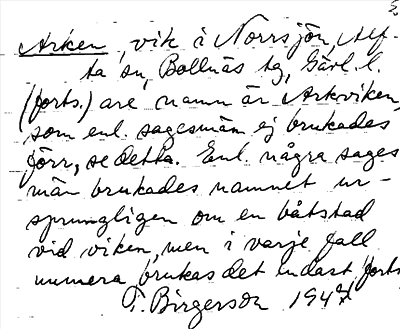 Arken, vik i Norrsjön, Alf-
ta sn, Bollnäs tg, Gävl. l.
(forts.) are namn är Arkviken,
som enl. sagesmän ej brukades
förr, se detta. Enl. några sages
män brukades namnet ur-
sprungligen om en båtstad
vid viken, men i varje fall
numera brukas det endast forts
T. Birgerson 194